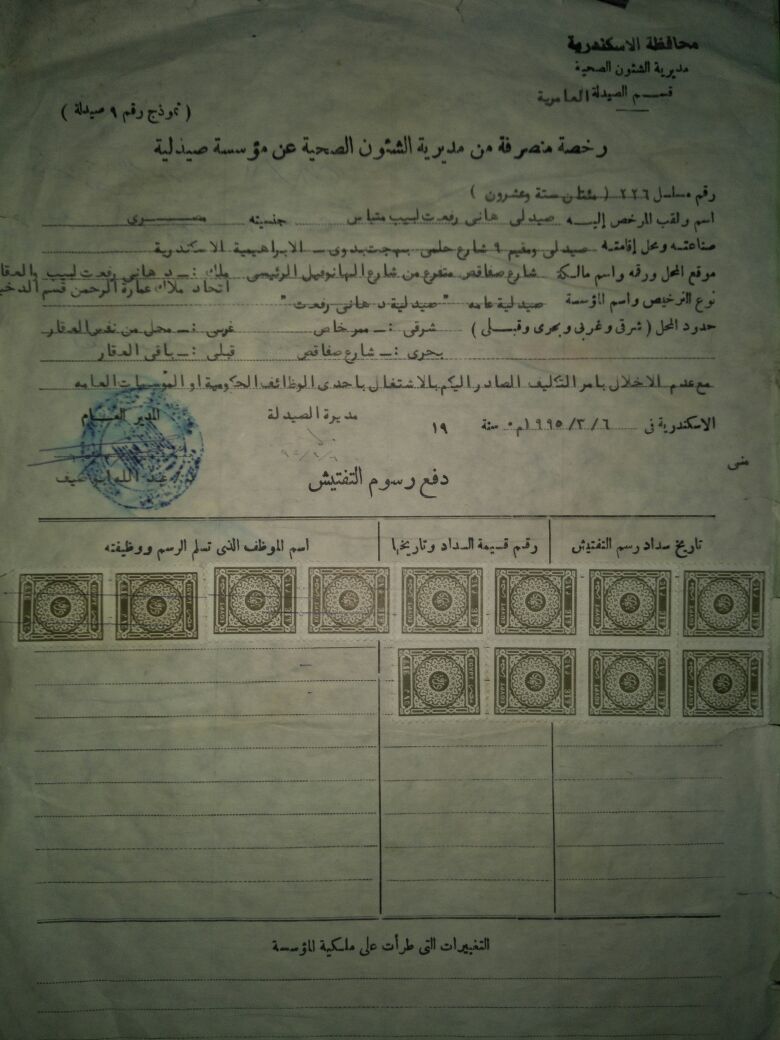 محافظة الاسكندرية
مديرية الشئون الصحية
قسم الصيدلة العامرية
( نموذج رقم ٩ صيدلة )
رخصة منصرفة من مديرية الشئون الصحية عن مؤسسة صيدلية
رقم مسلسل ٢٢٦ ( مئتان ستة وعشرون )
اسم ولقب المرخص إليه صيدلى هانى رفعت لبيب متياس جنسيته مصرى
صناعته ومحل إقامته صيدلى ومقيم ٩ شارع حلمى بهجت بدوى – الابراهيمية الاسكندرية
موقع المحل ورقمه واسم مالكه شارع صفاقص متفرع من شارع الهانوفيل الرئيسى ملك :ـ د هانى رفعت لبيب والعقا
اتحاد ملاك عمارة الرحمن قسم الدخي
نوع الترخيص واسم المؤسسة صيدلية عامه " صيدلية د هانى رفعت "
حدود المحل ( شرقى وغربى وبحرى وقبلى ) شرقى :ـ ممر خاص غربى :ـ محل من نفس العقار
بحرى :ـ شارع صفاقص قبلى :ـ باقى العقار
مع عدم الاخلال بامر التكليف الصادر اليكم بالاشتغال باحدى الوظائف الحكومية او المؤسسات العامه
الاسكندرية فى ٦ / ٣ / ١٩٩٥م٠ سنة ١٩
مديرة الصيدلة
المدير العام
منى
دفع رسوم التفتيش
تاريخ سداد رسم التفتيش
رقم قسيمة السداد وتاريخها
اسم الموظف الذى تسلم الرسم ووظيفته
التغييرات التى طرأت على ملكية المؤسسة